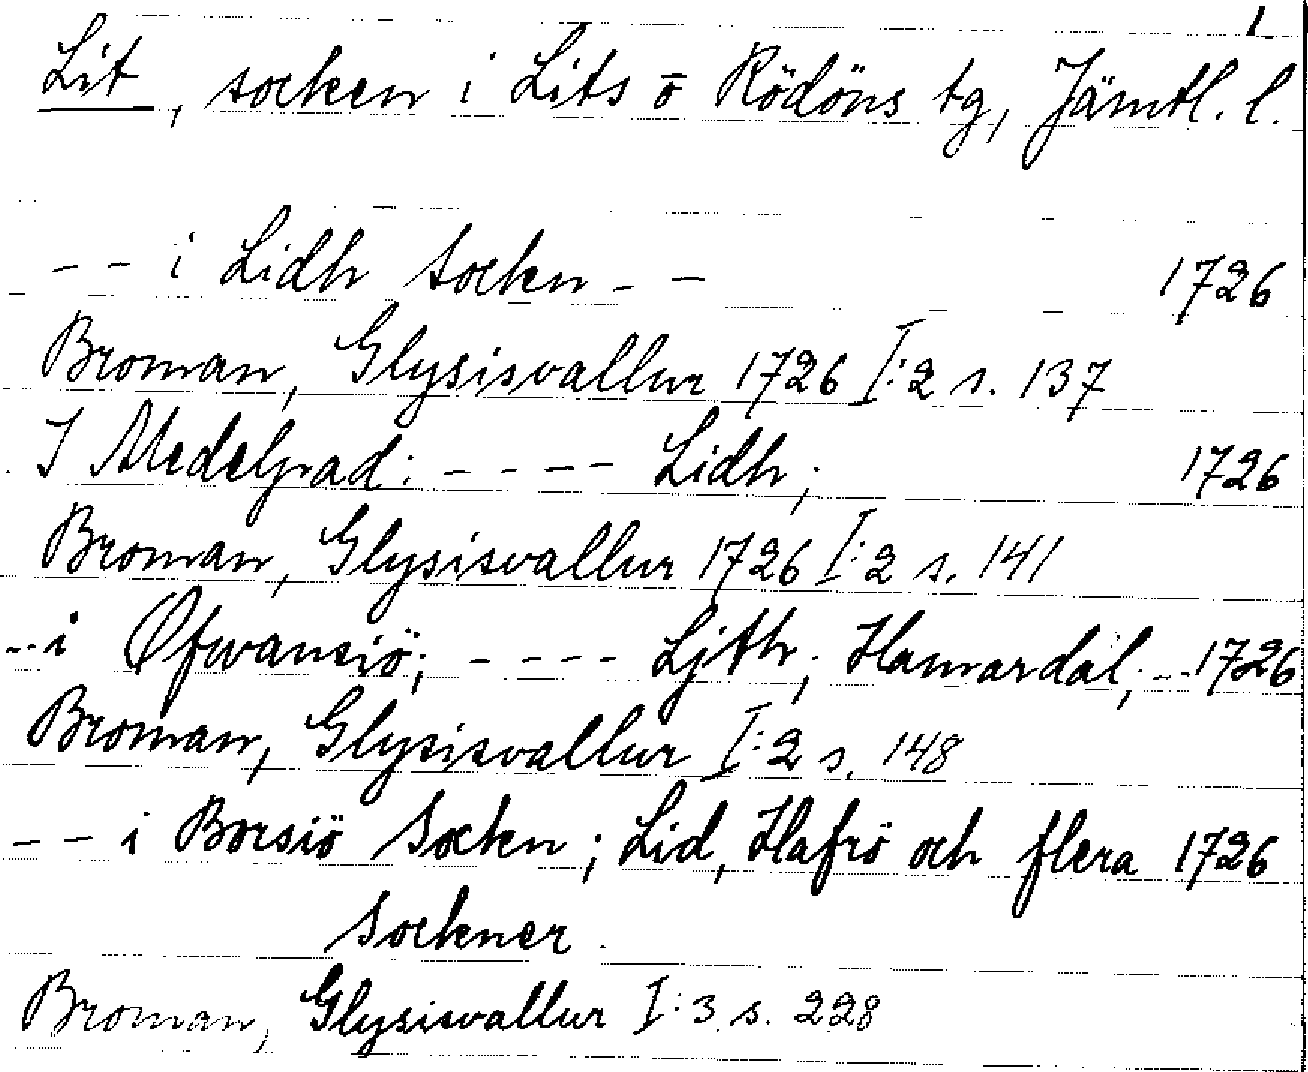 1
Lit, socken i Lits ō Rödöns tg, Jämtl. l.
-- i Lidh Socken -- 1726
Broman, Glysisvallur 1726 I:2 s. 137
I Medelpad: ---- Lidh; 1726
Broman, Glysisvallur 1726 I:2 s. 141
-- i Øfwansiö; ---- Ljth; Hamardal; -- 1726
Broman, Glysisvallur I:2 s. 148
-- i Borsiö Socken; Lid, Hafrö och flera 1726
Sockner.
Broman, Glysisvallur I:3 s. 228